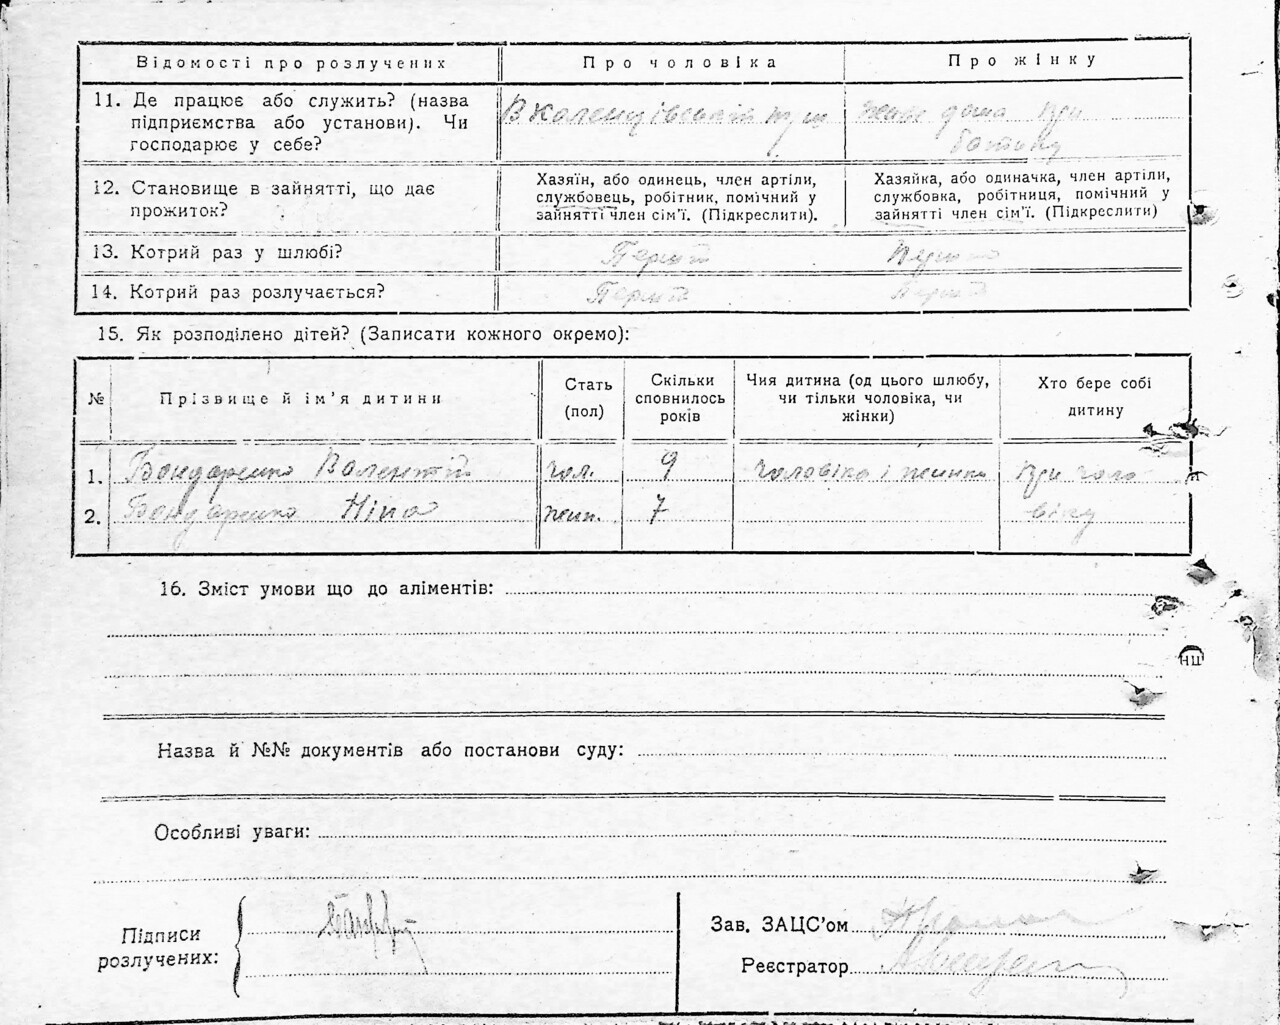 Відомості про розлучених
Про чоловіка
Про жінку
11. Де працює або служить? (назва
підприємства або установи). Чи
господарює у себе?
В
дома при
12. Становище в зайнятті, що дає
прожиток?
Хазяїн, або одинець, член артіли,
службовець, робітник, помічний у
зайнятті член сім'ї. (Підкреслити).
Хазяйка, або одиначка, член артіли,
службовка, робітниця, помічний у
зайнятті член сім'ї. (Підкреслити)
13. Котрий раз у шлюбі?
14. Котрий раз розлучається?
15. Як розподілено дітей? (Записати кожного окремо):
№
Прізвище й ім'я дитини
Стать
(пол)
Скільки
сповнилось
років
Чия дитина (од цього шлюбу,
чи тільки чоловіка, чи
жінки)
Хто бере собі
дитину
1. Бондаренко Валентій чол. 9 чоловіка і жинки при чоло
2. Бондаренко Ніна жин. 7 віку
16. Зміст умови що до аліментів:
Назва й №№ документів або постанови суду:
Особливі уваги:
Підписи
розлучених:
Зав. ЗАЦС'ом
Реєстратор